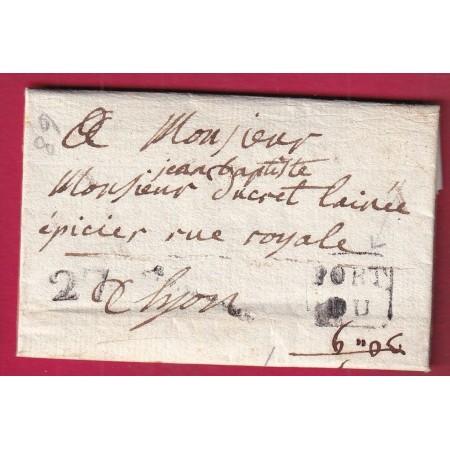 A Monsieur
jean baptiste
Monsieur Ducret lainée
épicier rue royale
27 A Lyon
PORT
DU
6"06
68